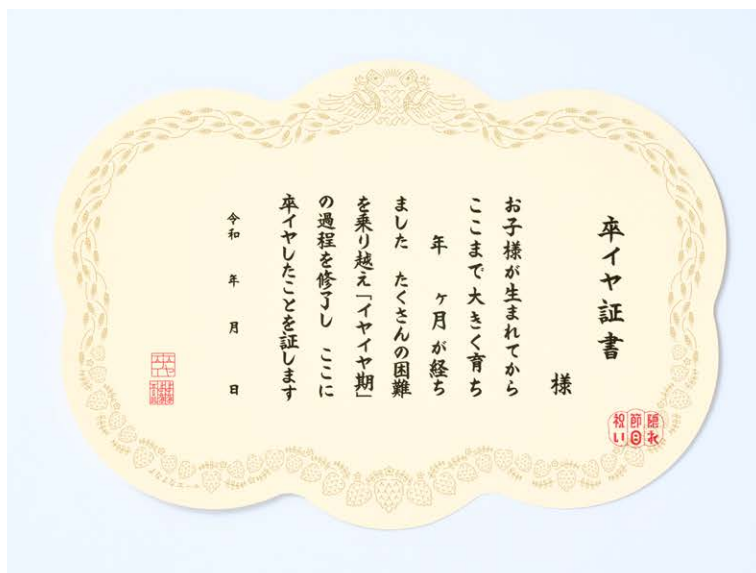 卒イヤ証書
様
お子様が生まれてから
ここまで大きく育ち
年 ヶ月が経ち
ました たくさんの困難
を乗り越え「イヤイヤ期」
の過程を修了し ここに
卒イヤしたことを証します
令和 年 月 日
隠れ
節目
祝い
よなよなエール